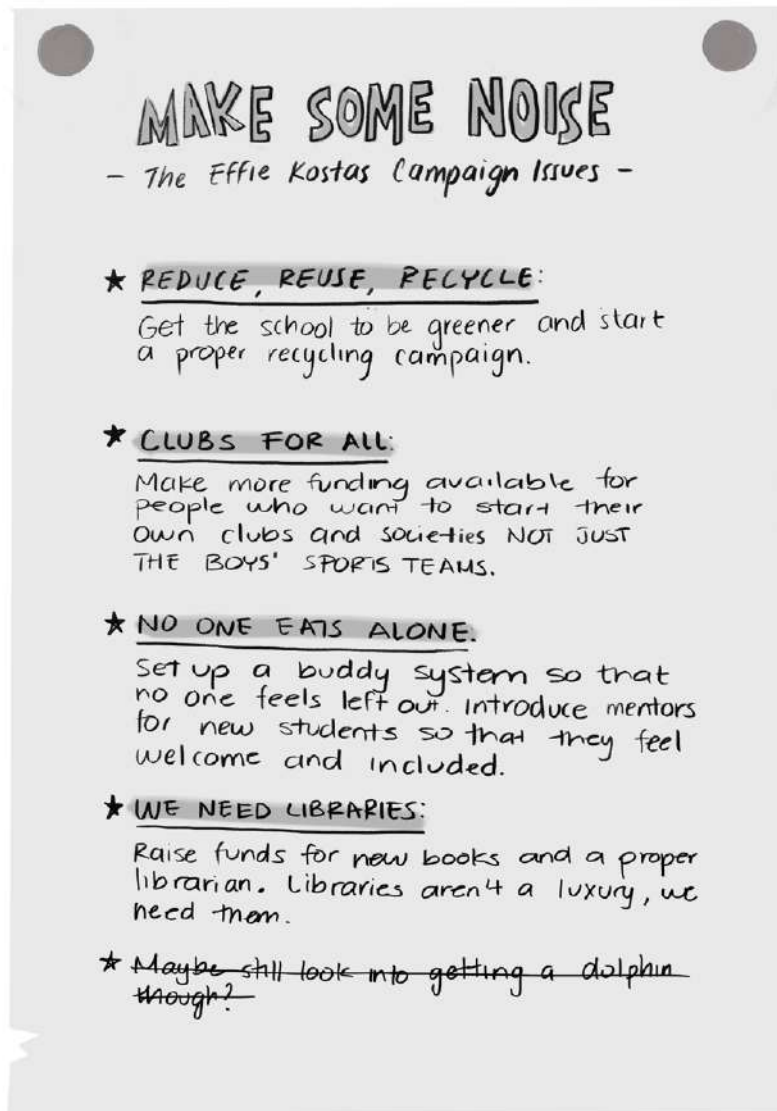 MAKE SOME NOISE
- The Effie Kostas Campaign Issues -
★ REDUCE, REUSE, RECYCLE:
Get the school to be greener and start
a proper recycling campaign.
★ CLUBS FOR ALL:
Make more funding available for
people who want to start their
own clubs and societies NOT JUST
THE BOYS' SPORTS TEAMS.
★ NO ONE EATS ALONE.
Set up a buddy system so that
no one feels left out. Introduce mentors
for new students so that they feel
welcome and included.
★ WE NEED LIBRARIES:
Raise funds for new books and a proper
librarian. Libraries aren't a luxury, we
need them.
★ Maybe still look into getting a dolphin
though?